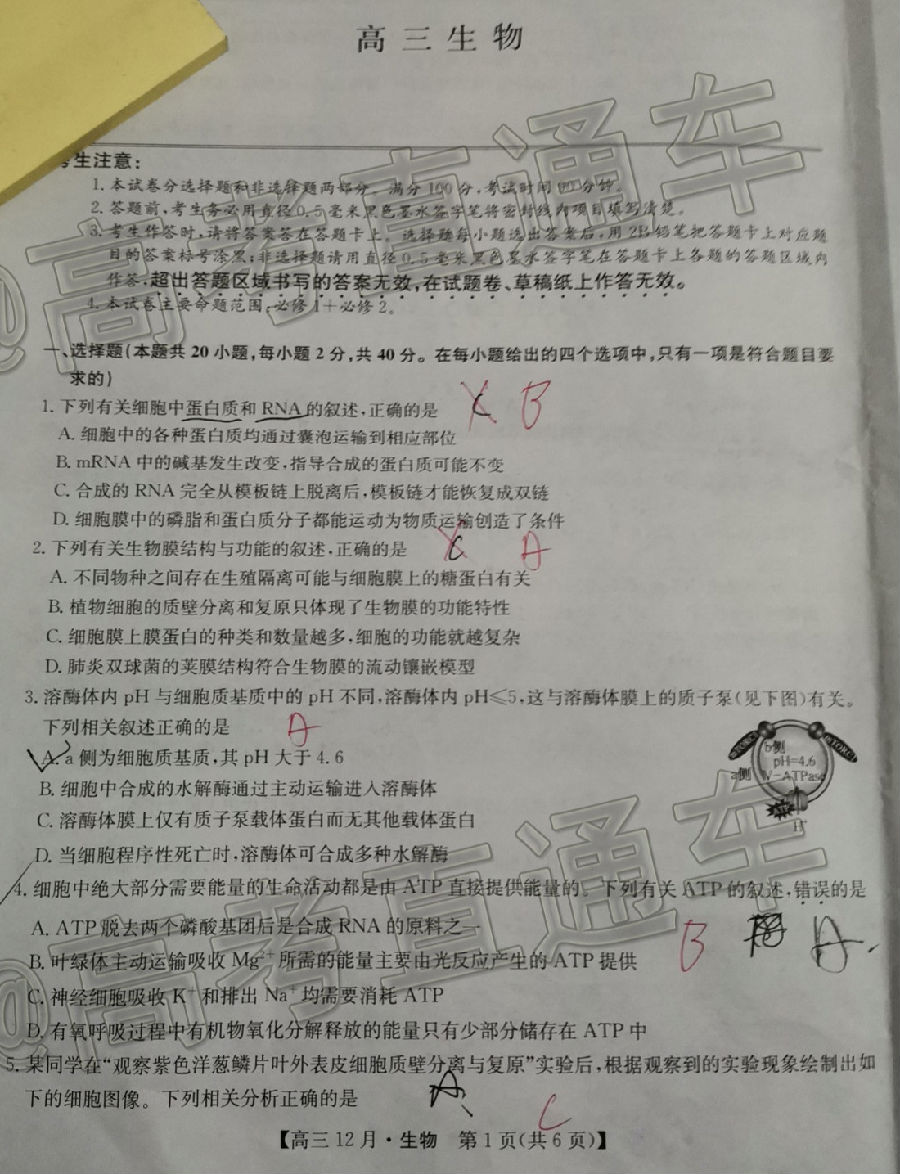 高三生物
考生注意:
1.本试卷分选择题和非选择题两部分。满分100分,考试时间90分钟。
2.答题前,考生务必用直径0.5毫米黑色墨水签字笔将密封线内项目填写清楚。
3.考生作答时,请将答案答在答题卡上。选择题每小题选出答案后,用2B铅笔把答题卡上对应题
目的答案标号涂黑;非选择题请用直径0.5毫米黑色墨水签字笔在答题卡上各题的答题区域内
作答,超出答题区域书写的答案无效,在试题卷、草稿纸上作答无效。
4.本试卷主要命题范围:必修1+必修2。
一、选择题(本题共20小题,每小题2分,共40分。在每小题给出的四个选项中,只有一项是符合题目要
求的)
1.下列有关细胞中蛋白质和RNA的叙述,正确的是 C B
A.细胞中的各种蛋白质均通过囊泡运输到相应部位
B.mRNA中的碱基发生改变,指导合成的蛋白质可能不变
C.合成的RNA完全从模板链上脱离后,模板链才能恢复成双链
D.细胞膜中的磷脂和蛋白质分子都能运动为物质运输创造了条件
2.下列有关生物膜结构与功能的叙述,正确的是 C A
A.不同物种之间存在生殖隔离可能与细胞膜上的糖蛋白有关
B.植物细胞的质壁分离和复原只体现了生物膜的功能特性
C.细胞膜上膜蛋白的种类和数量越多,细胞的功能就越复杂
D.肺炎双球菌的荚膜结构符合生物膜的流动镶嵌模型
3.溶酶体内pH与细胞质基质中的pH不同,溶酶体内pH≤5,这与溶酶体膜上的质子泵(见下图)有关。
下列相关叙述正确的是 A
A.a侧为细胞质基质,其pH大于4.6
B.细胞中合成的水解酶通过主动运输进入溶酶体
C.溶酶体膜上仅有质子泵载体蛋白而无其他载体蛋白
D.当细胞程序性死亡时,溶酶体可合成多种水解酶
b侧
pH=4.6
a侧 V-ATPase
H⁺
4.细胞中绝大部分需要能量的生命活动都是由ATP直接提供能量的。下列有关ATP的叙述,错误的是
A.ATP脱去两个磷酸基团后是合成RNA的原料之一
B.叶绿体主动运输吸收Mg²⁺所需的能量主要由光反应产生的ATP提供 B A
C.神经细胞吸收K⁺和排出Na⁺均需要消耗ATP
D.有氧呼吸过程中有机物氧化分解释放的能量只有少部分储存在ATP中
5.某同学在“观察紫色洋葱鳞片叶外表皮细胞质壁分离与复原”实验后,根据观察到的实验现象绘制出如
下的细胞图像。下列相关分析正确的是 A C
【高三12月·生物 第1页(共6页)】
@高考直通车
@高考直通车